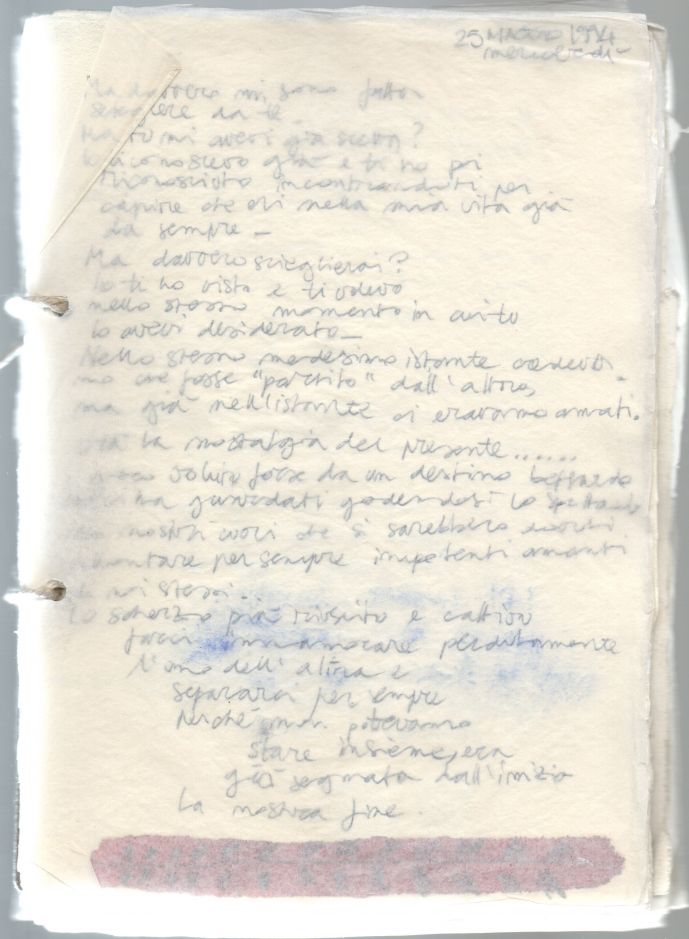 25 MAGGIO 1994
mercoledì
Ma davvero mi sono fatta
scegliere da te
Ma tu mi avevi già scelta?
Io ti conoscevo già e ti ho poi
riconosciuto incontrandoti per
capire che eri nella mia vita già
da sempre _
Ma davvero sceglierai?
Io ti ho visto e ti volevo
nello stesso momento in cui tu
lo avevi desiderato _
Nello stesso medesimo istante credeva-
mo che fosse "partito" dall'altro,
ma già nell'istante ci eravamo amati.
la nostalgia del presente......
voluto forse da un destino beffardo
ha guardati godendosi lo spettacolo
nostri cuori che si sarebbero
diventare per sempre impotenti amanti
noi stessi...
Lo scherzo più riuscito e cattivo
farci innamorare perdutamente
l'uno dell'altra e
separarci per sempre
Perché non potevamo
stare insieme, era
già segnata dall'inizio
La nostra fine.